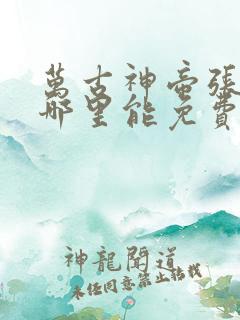 萬古神帝張
哪里能免費
神龍聞道
未經同意禁止轉載